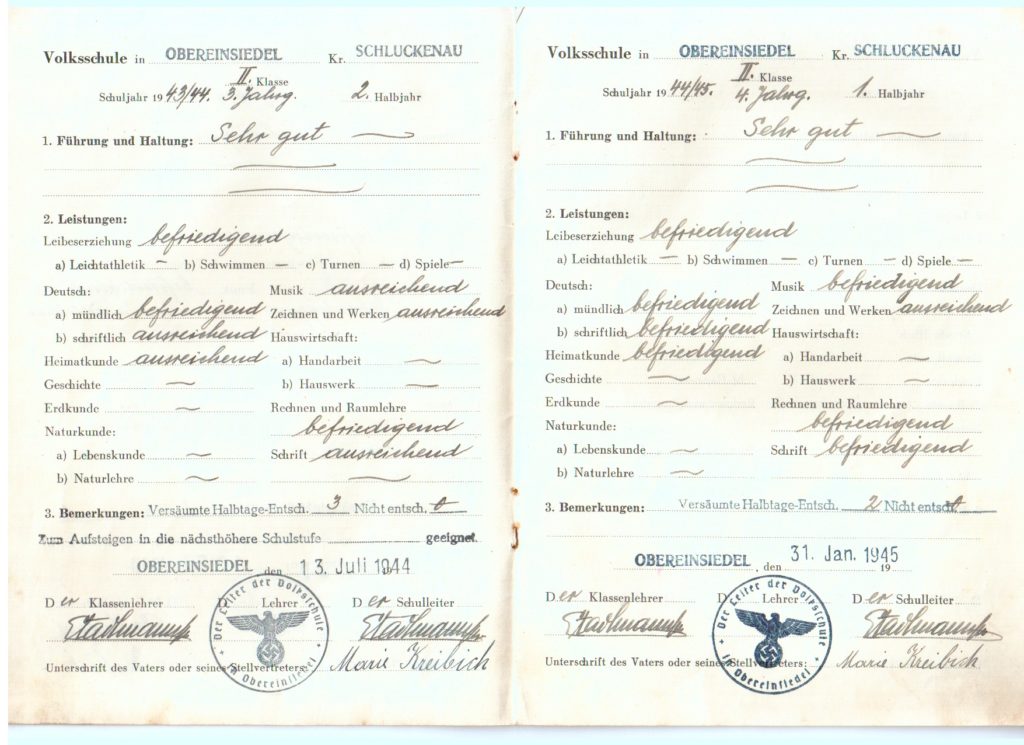 Volksschule in OBEREINSIEDEL Kr. SCHLUCKENAU
II. Klasse
Schuljahr 1943/44. 3. Jahrg. 2. Halbjahr
1. Führung und Haltung: Sehr gut
2. Leistungen:
Leibeserziehung befriedigend
a) Leichtathletik — b) Schwimmen — c) Turnen — d) Spiele —
Deutsch: Musik ausreichend
a) mündlich befriedigend Zeichnen und Werken ausreichend
b) schriftlich ausreichend Hauswirtschaft:
Heimatkunde ausreichend a) Handarbeit —
Geschichte — b) Hauswerk —
Erdkunde — Rechnen und Raumlehre
Naturkunde: befriedigend
a) Lebenskunde — Schrift ausreichend
b) Naturlehre — —
3. Bemerkungen: Versäumte Halbtage-Entsch. 3 Nicht entsch. 0
Zum Aufsteigen in die nächsthöhere Schulstufe geeignet.
OBEREINSIEDEL, den 13. Juli 1944
Der Klassenlehrer D Lehrer Der Schulleiter
Der Leiter der Volksschule in Obereinsiedel
Unterschrift des Vaters oder seines Stellvertreters: Marie Kreibich
Volksschule in OBEREINSIEDEL Kr. SCHLUCKENAU
II. Klasse
Schuljahr 1944/45. 4. Jahrg. 1. Halbjahr
1. Führung und Haltung: Sehr gut
2. Leistungen:
Leibeserziehung befriedigend
a) Leichtathletik — b) Schwimmen — c) Turnen — d) Spiele —
Deutsch: Musik befriedigend
a) mündlich befriedigend Zeichnen und Werken ausreichend
b) schriftlich befriedigend Hauswirtschaft:
Heimatkunde befriedigend a) Handarbeit —
Geschichte — b) Hauswerk —
Erdkunde — Rechnen und Raumlehre
Naturkunde: befriedigend
a) Lebenskunde — Schrift befriedigend
b) Naturlehre —
3. Bemerkungen: Versäumte Halbtage-Entsch. 2 Nicht entsch. 0
OBEREINSIEDEL, den 31. Jan. 1945 19
Der Klassenlehrer Lehrer Der Schulleiter
Der Leiter der Volksschule in Obereinsiedel
Unterschrift des Vaters oder seines Stellvertreters: Marie Kreibich